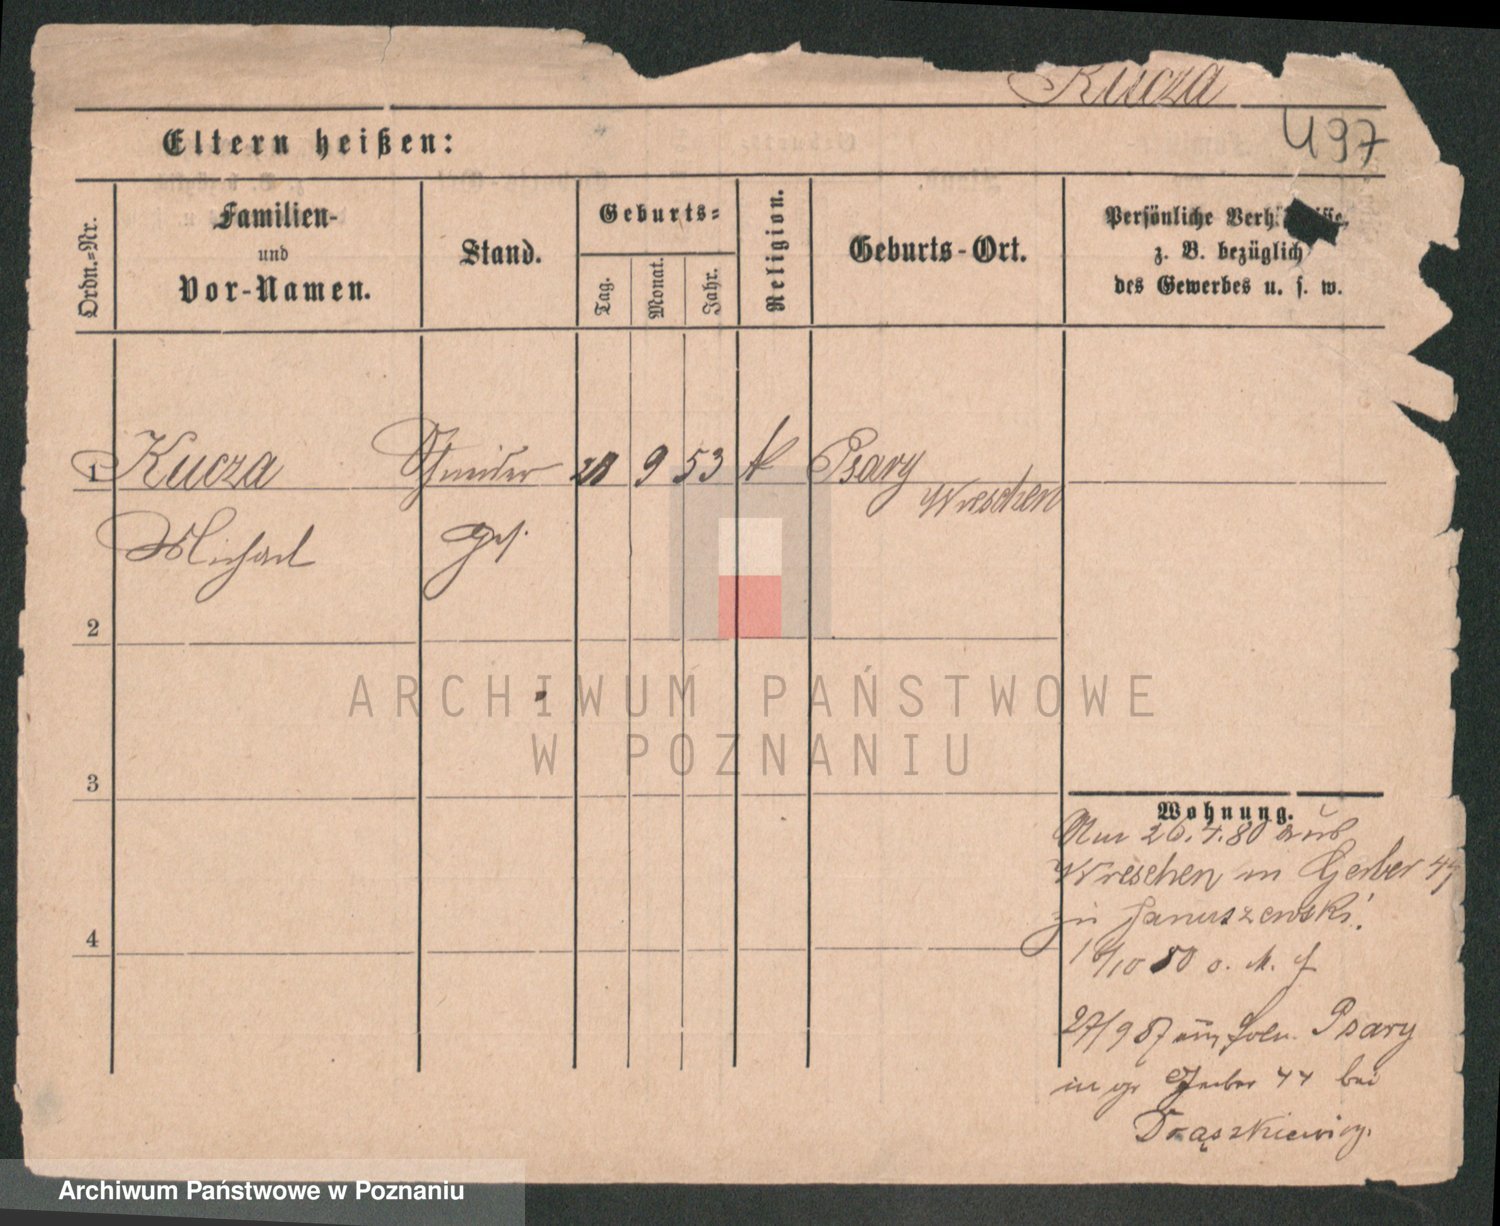 Kucza
497
Eltern heißen:
Ordn.-Nr.
Familien-
und
Vor-Namen.
Stand.
Geburts-
Tag.
Monat.
Jahr.
Religion.
Geburts-Ort.
Persönliche
z. B. bezüglich
des Gewerbes u. s. w.
1 Kucza Schneider 9 53 k Psary
Wreschen
Michael ges.
2
3
4
Wohnung.
26.4.80 aus
Wreschen in Gerber 44
zu Januszewski.
/10 80 o. M. f
27/9 87 Psary
in gr Gerber 44 bei
Drąszkiewicz.
ARCHIWUM PAŃSTWOWE
W POZNANIU
Archiwum Państwowe w Poznaniu